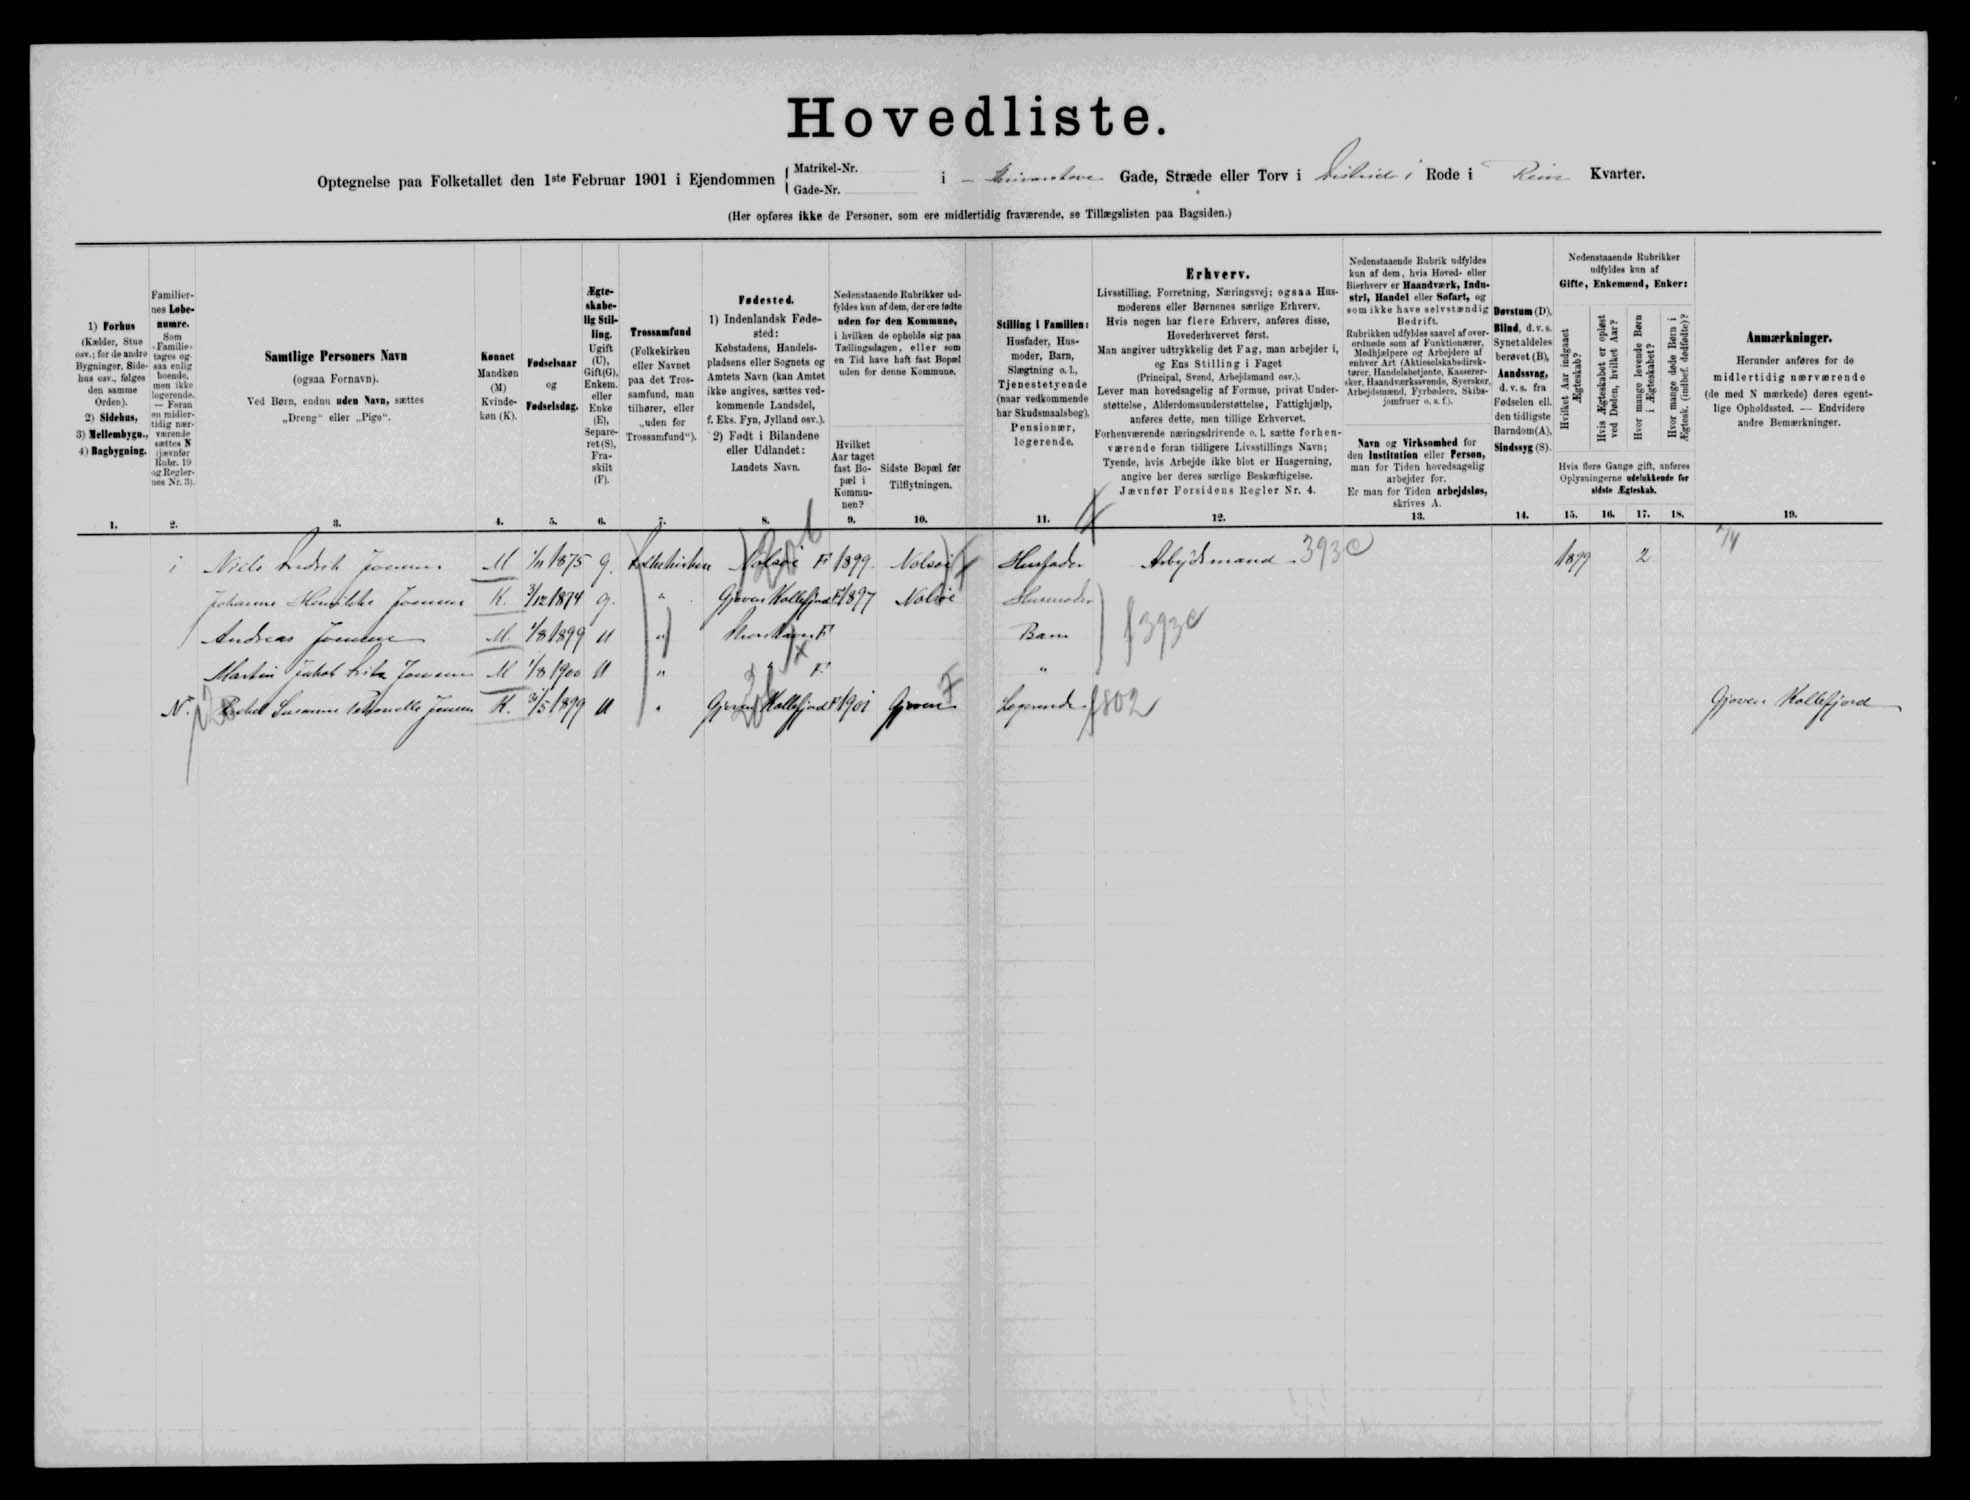 Hovedliste.
Optegnelse paa Folketallet den 1ste Februar 1901 i Ejendommen { Matrikel-Nr. Gade-Nr. i Gade, Stræde eller Torv i District 1 Rode i Kvarter.
(Her opføres ikke de Personer, som ere midlertidig fraværende, se Tillægslisten paa Bagsiden.)
1) Forhus
(Kælder, Stue
osv.; for de andre
Bygninger, Side-
hus osv., følges
den samme
Orden).
2) Sidehus,
3) Mellembygn.,
4) Bagbygning.
Familier-
nes Løbe-
numre.
Som
„Familie“
tages og-
saa enlig
boende,
men ikke
logerende.
— Foran
en midler-
tidig nær-
værende
sættes N
(jævnfør
Rubr. 19
og Regler-
nes Nr. 3).
Samtlige Personers Navn
(ogsaa Fornavn).
Ved Børn, endnu uden Navn, sættes
„Dreng“ eller „Pige“.
Kønnet
Mandkøn
(M)
Kvinde-
køn (K).
Fødselsaar
og
Fødselsdag.
Ægte-
skabe-
lig Stil-
ling.
Ugift
(U),
Gift(G),
Enkem.
eller
Enke
(E),
Separe-
ret(S),
Fra-
skilt
(F).
Trossamfund
(Folkekirken
eller Navnet
paa det Tros-
samfund, man
tilhører, eller
„uden for
Trossamfund“).
Fødested.
1) Indenlandsk Føde-
sted:
Købstadens, Handels-
pladsens eller Sognets og
Amtets Navn (kan Amtet
ikke angives, sættes ved-
kommende Landsdel,
f. Eks. Fyn, Jylland osv.).
2) Født i Bilandene
eller Udlandet:
Landets Navn.
Nedenstaaende Rubrikker ud-
fyldes kun af dem, der ere fødte
uden for den Kommune,
i hvilken de opholde sig paa
Tællingsdagen, eller som
en Tid have haft fast Bopæl
uden for denne Kommune.
Hvilket
Aar taget
fast Bo-
pæl i
Kommu-
nen?
Sidste Bopæl før
Tilflytningen.
Stilling i Familien:
Husfader, Hus-
moder, Barn,
Slægtning o.l.,
Tjenestetyende
(naar vedkommende
har Skudsmaalsbog),
Pensionær,
logerende.
Erhverv.
Livsstilling, Forretning, Næringsvej; ogsaa Hus-
moderens eller Børnenes særlige Erhverv.
Hvis nogen har flere Erhverv, anføres disse,
Hovederhvervet først.
Man angiver udtrykkelig det Fag, man arbejder i,
og Ens Stilling i Faget
(Principal, Svend, Arbejdsmand osv.).
Lever man hovedsagelig af Formue, privat Under-
støttelse, Alderdomsunderstøttelse, Fattighjælp,
anføres dette, men tillige Erhvervet.
Forhenværende næringsdrivende o. l. sætte forhen-
værende foran tidligere Livsstillings Navn;
Tyende, hvis Arbejde ikke blot er Husgerning,
angive her deres særlige Beskæftigelse.
Jævnfør Forsidens Regler Nr. 4.
Nedenstaaende Rubrik udfyldes
kun af dem, hvis Hoved- eller
Bierhverv er Haandværk, Indu-
stri, Handel eller Søfart, og
som ikke have selvstændig
Bedrift.
Rubrikken udfyldes saavel af over-
ordnede som af Funktionærer,
Medhjælpere og Arbejdere af
enhver Art (Aktieselskabsdirek-
tører, Handelsbetjente, Kasserer-
sker, Haandværkssvende, Syersker,
Arbejdsmænd, Fyrbødere, Skibs-
jomfruer o. s. f.).
Navn og Virksomhed for
den Institution eller Person,
man for Tiden hovedsagelig
arbejder for.
Er man for Tiden arbejdsløs,
skrives A.
Døvstum (D),
Blind, d. v. s.
Synet aldeles
berøvet (B),
Aandssvag,
d. v. s. fra
Fødselen ell.
den tidligste
Barndom(A),
Sindssyg (S).
Nedenstaaende Rubrikker
udfyldes kun af
Gifte, Enkemænd, Enker:
Hvilket Aar indgaaet
Ægteskab?
Hvis Ægteskabet er opløst
ved Døden, hvilket Aar?
Hvor mange levende Børn
i Ægteskabet?
Hvor mange døde Børn i
Ægtesk. (indbef. dødfødte)?
Hvis flere Gange gift, anføres
Oplysningerne udelukkende for
sidste Ægteskab.
Anmærkninger.
Herunder anføres for de
midlertidig nærværende
(de med N mærkede) deres egent-
lige Opholdssted. — Endvidere
andre Bemærkninger.
1. 2. 3. 4. 5. 6. 7. 8. 9. 10. 11. 12. 13. 14. 15. 16. 17. 18. 19.
1 Niels Joensen M 1/11 1875 G. Folkekirken Nolsøe F 1899 Nolsøe Husfader Arbejdsmand 393c 1899 2
Johanne Joensen K. 3/12 1874 G. " Gjoven Kollefjord F 1897 Nolsøe Husmoder
Andreas Joensen M. 1/8 1899 U " Thorshavn F Barn 393c
Martin Jakob Joensen M 1/8 1900 U " " F. "
N. Susanne Joensen K. 31/5 1899 U " Gjoven Kollefjord F 1901 Gjoven Logerende 802 Gjoven Kollefjord